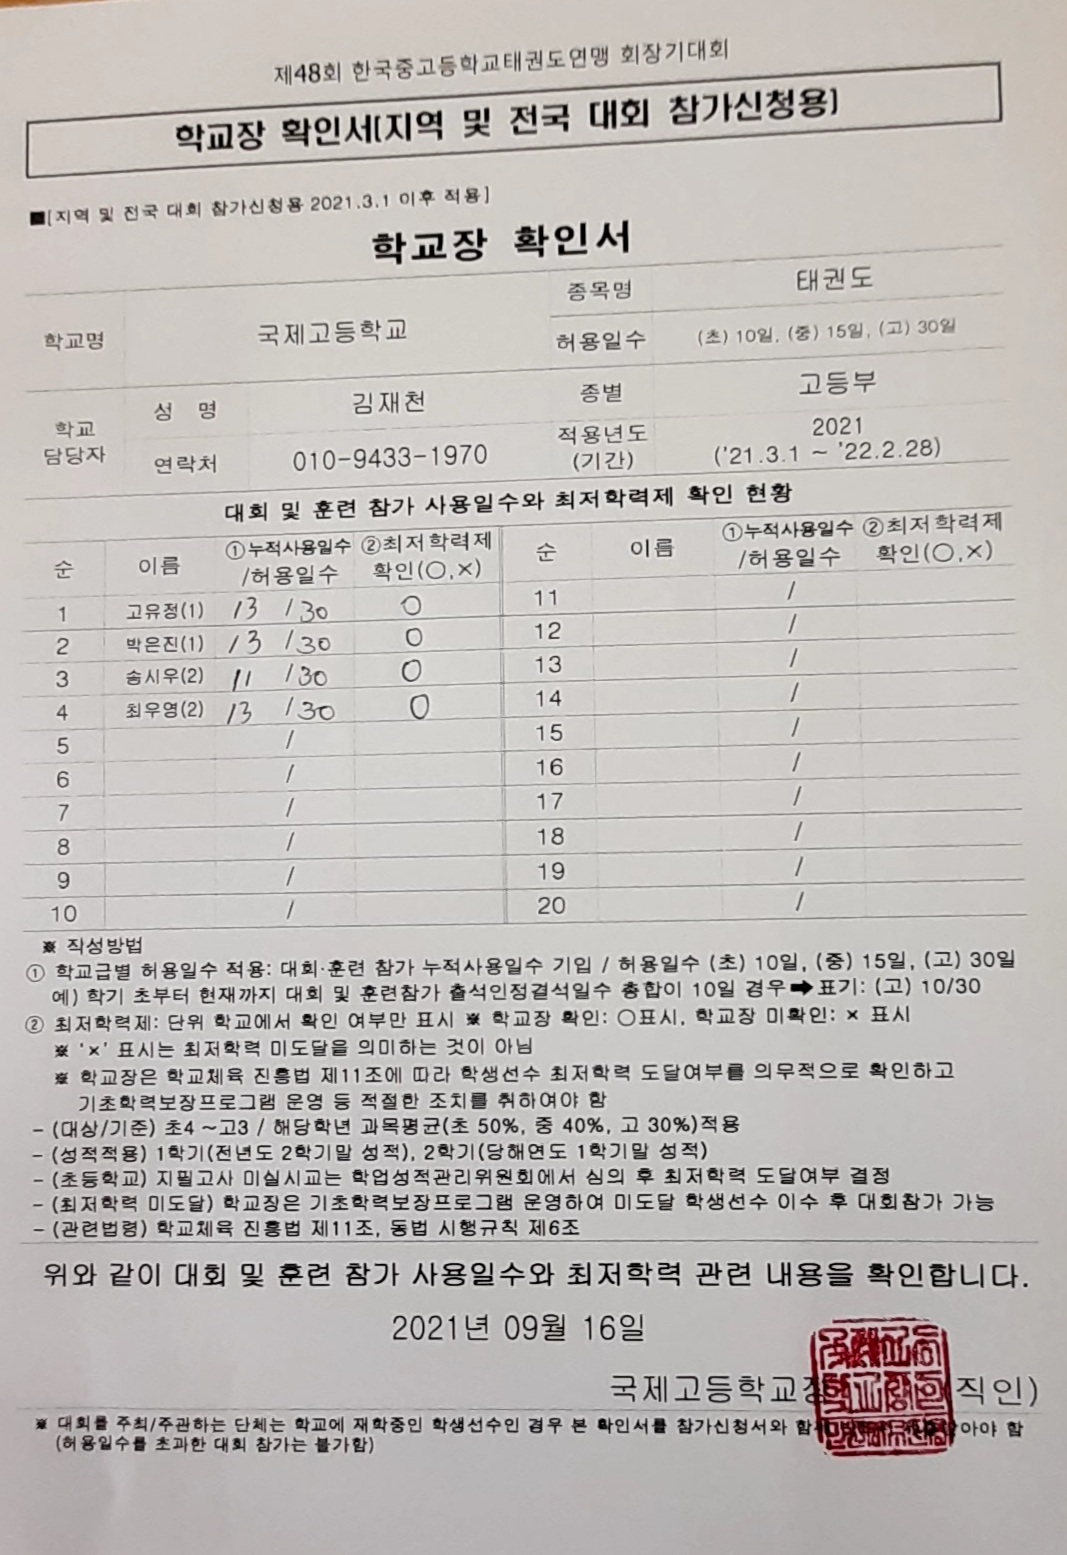 제48회 한국중고등학교태권도연맹 회장기대회
학교장 확인서(지역 및 전국 대회 참가신청용)
■[지역 및 전국 대회 참가신청용 2021.3.1 이후 적용]
학교장 확인서
학교명 국제고등학교 종목명 태권도
허용일수 (초) 10일, (중) 15일, (고) 30일
학교 담당자 성 명 김재천 종별 고등부
연락처 010-9433-1970 적용년도 (기간) 2021 ('21.3.1 ~ '22.2.28)
대회 및 훈련 참가 사용일수와 최저학력제 확인 현황
순 이름 ①누적사용일수 /허용일수 ②최저학력제 확인(○,×) 순 이름 ①누적사용일수 /허용일수 ②최저학력제 확인(○,×)
1 고유정(1) 13 /30 ○ 11 /
2 박은진(1) 13 /30 ○ 12 /
3 송시우(2) 11 /30 ○ 13 /
4 최우영(2) 13 /30 ○ 14 /
5 / 15 /
6 / 16 /
7 / 17 /
8 / 18 /
9 / 19 /
10 / 20 /
※ 작성방법
① 학교급별 허용일수 적용: 대회·훈련 참가 누적사용일수 기입 / 허용일수 (초) 10일, (중) 15일, (고) 30일
예) 학기 초부터 현재까지 대회 및 훈련참가 출석인정결석일수 총합이 10일 경우➡표기: (고) 10/30
② 최저학력제: 단위 학교에서 확인 여부만 표시 ※ 학교장 확인: ○표시, 학교장 미확인: × 표시
※ '×' 표시는 최저학력 미도달을 의미하는 것이 아님
※ 학교장은 학교체육 진흥법 제11조에 따라 학생선수 최저학력 도달여부를 의무적으로 확인하고
기초학력보장프로그램 운영 등 적절한 조치를 취하여야 함
- (대상/기준) 초4 ~고3 / 해당학년 과목평균(초 50%, 중 40%, 고 30%)적용
- (성적적용) 1학기(전년도 2학기말 성적), 2학기(당해연도 1학기말 성적)
- (초등학교) 지필고사 미실시교는 학업성적관리위원회에서 심의 후 최저학력 도달여부 결정
- (최저학력 미도달) 학교장은 기초학력보장프로그램 운영하여 미도달 학생선수 이수 후 대회참가 가능
- (관련법령) 학교체육 진흥법 제11조, 동법 시행규칙 제6조
위와 같이 대회 및 훈련 참가 사용일수와 최저학력 관련 내용을 확인합니다.
2021년 09월 16일
국제고등학교장 (직인)
※ 대회를 주최/주관하는 단체는 학교에 재학중인 학생선수인 경우 본 확인서를 참가신청서와 함께 받아야 함
(허용일수를 초과한 대회 참가는 불가함)